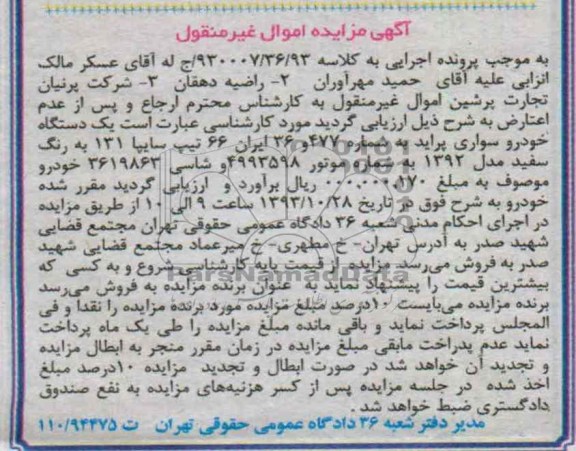 آگهی مزایده اموال غیرمنقول
به موجب پرونده اجرایی به کلاسه ۹۳۰۰۰۷/۳۶/۹۳/ج له آقای عسکر مالک
انزابی علیه آقای حمید مهرآوران ۲- راضیه دهقان ۳- شرکت پرنیان
تجارت پرشین اموال غیرمنقول به کارشناس محترم ارجاع و پس از عدم
اعتارض به شرح ذیل ارزیابی گردید مورد کارشناسی عبارت است یک دستگاه
خودرو سواری پراید به شماره ۴۷۷و۳۶ ایران ۶۶ تیپ سایپا ۱۳۱ به رنگ
سفید مدل ۱۳۹۲ به شماره موتور ۴۹۹۳۵۹۸و شاسی ۳۶۱۹۸۶۳ خودرو
موصوف به مبلغ ۰۰۰.۰۰۰.۱۷۰ ریال برآورد و ارزیابی گردید مقرر شده
خودرو به شرح فوق در تاریخ ۱۳۹۳/۱۰/۲۸ ساعت ۹ الی ۱۰ از طریق مزایده
در اجرای احکام مدنی شعبه ۳۶ دادگاه عمومی حقوقی تهران مجتمع قضایی
شهید صدر به آدرس تهران- خ مطهری- خ میرعماد مجتمع قضایی شهید
صدر به فروش می‌رسد. مزایده از قیمت پایه کارشناسی شروع و به کسی که
بیشترین قیمت را پیشنهاد نماید به عنوان برنده مزایده به فروش می‌رسد
برنده مزایده می‌بایست ۱۰درصد مبلغ مزایده مورد برنده مزایده را نقدا و فی
المجلس پرداخت نماید و باقی مانده مبلغ مزایده را طی یک ماه پرداخت
نماید عدم پدراخت مابقی مبلغ مزایده در زمان مقرر منجر به ابطال مزایده
و تجدید آن خواهد شد در صورت ابطال و تجدید مزایده ۱۰درصد مبلغ
اخذ شده در جلسه مزایده پس از کسر هزنیه‌های مزایده به نفع صندوق
دادگستری ضبط خواهد شد.
مدیر دفتر شعبه ۳۶ دادگاه عمومی حقوقی تهران ت ۱۱۰/۹۴۴۷۵
ParsNamadData